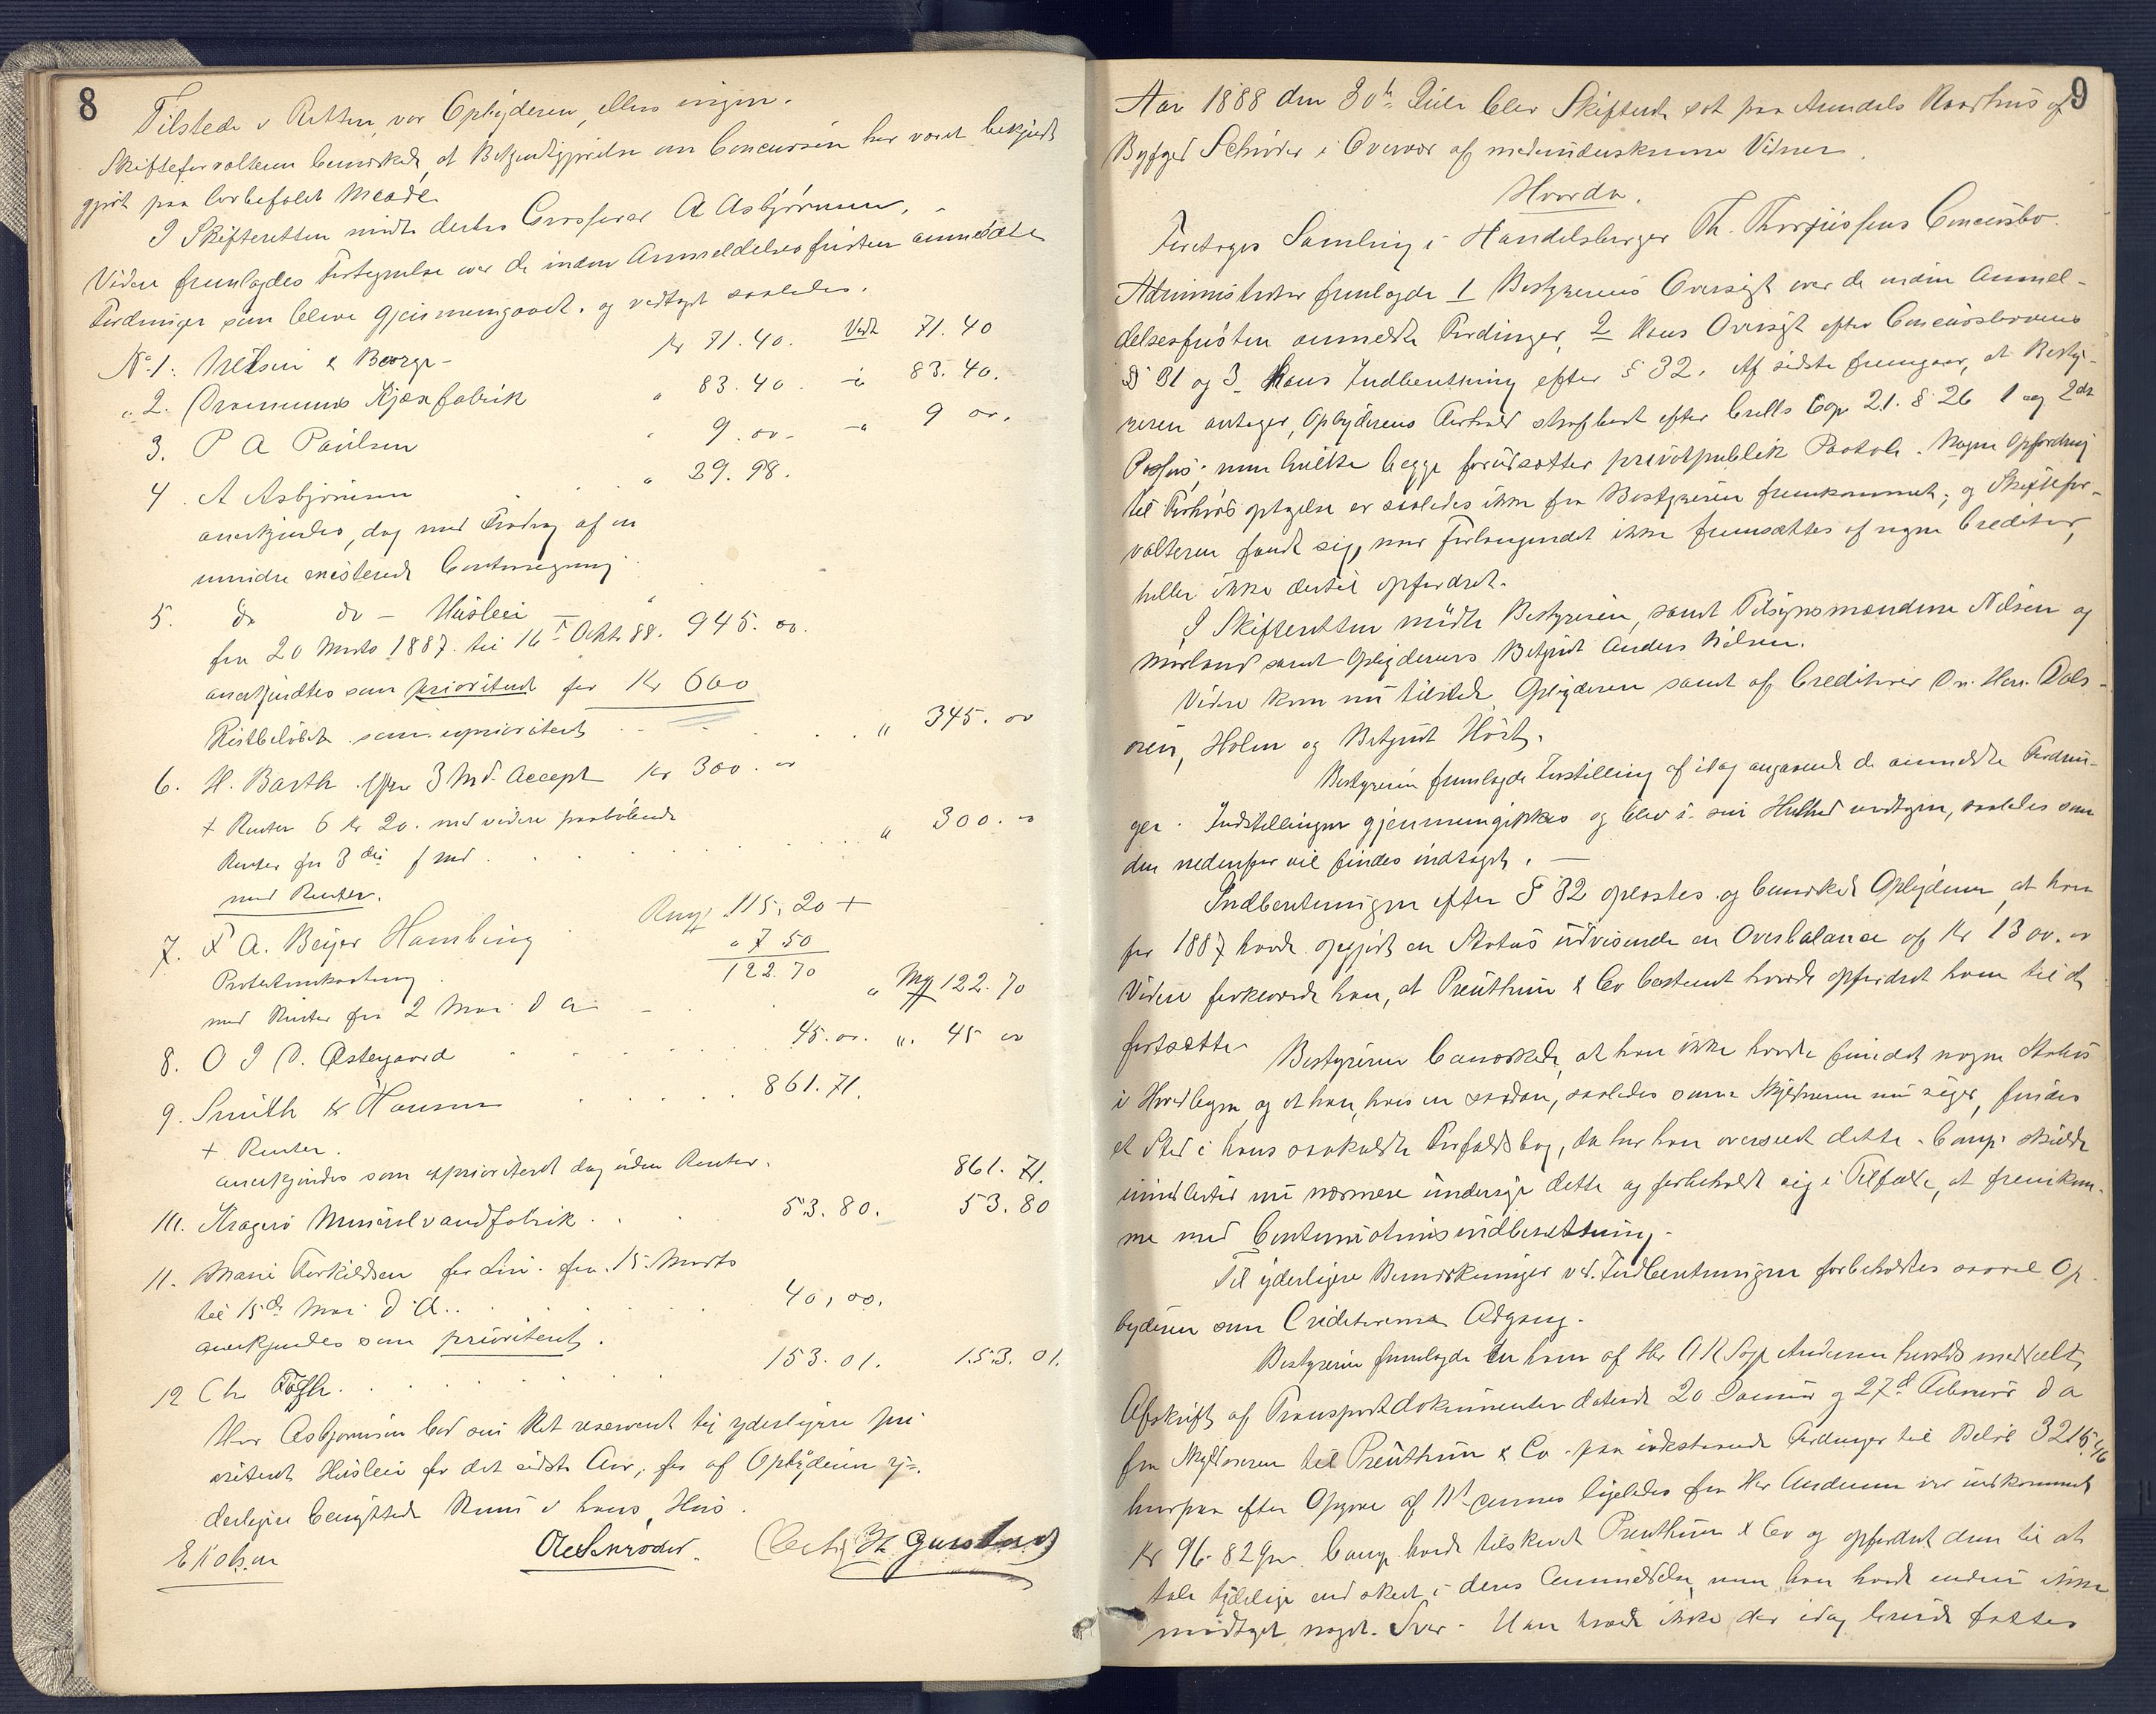 8
Tilstede i Retten var Opbyderen, ellers ingen.
Skifteforvalteren bemærkede, at Bekjendtgjørelse om Concursen har været bekjendt
gjort paa lovbefalet Maade
I Skifteretten mødte derhos Grosserer A Asbjørnsen.
Videre fremlagdes Fortegnelse over de inden Anmeldelsesfristen anmeldte
Fordringer som bleve gjennemgaaet og vedtaget saaledes.
No 1. Nielsen & Borge - Kr 71.40. Vedt 71.40
" 2. Kjæxfabrik " 83.40. -"- 83.40.
3. P A Paulsen " 9.00 - -"- 9 00.
4. A Asbjørnsen " 29.98.
anerkjendes, dog med Fradrag af en
mindre existerende Contraregning
5. do do - Husleie - "
fra 20 Marts 1887 til 16de Octb 88. 945.00.
anerkjendtes som prioriteret for Kr 600
Restbeløbet som uprioriteret " 345.00
6. H. Barth 3 Md. Accept Kr 300.00
+ Renter 6 Kr 20. med videre paaløbende
Renter fra 3die f Md " 300.00
med Renter.
7. F A. Beijer Hamburg Rmf 115.20 +
Protestomkostning " 7 50
122.70
med Renter fra 2 Mai d A - " Mf 122.70
8. O J D. Østergaard 45.00. " 45 00
9. Smith & Hansen 861.71.
+ Renter.
anerkjendes som uprioriteret dog uden Renter. 861.71.
10. Kragerø Mineralvandfabrik 53.80. 53.80
11. Marie Torkildsen for Løn fra 15. Marts
til 15de Mai d A. 40,00.
anerkjendes som prioriteret.
12 Chr 153.01. 153.01.
Herr Asbjørnsen bad sin Ret reserveret til yderligere pri
oriteret Husleie for det sidste Aar, for af Opbyderen y-
derligere benyttede Rum i hans Hus.
9
Aar 1888 den 30te Juli blev Skifteret sat paa Arendals Raadhus af
Byfoged Schrøder i Overvær af medunderskrevne Vidner.
Hvorda.
Foretoges Samling i Handelsborger Th. Thorjussens Concursbo.
Administrator fremlagde 1 Bestyrerens Oversigt over de inden Anmel-
delsesfristen anmeldte Fordringer, 2 Hans Oversigt efter Concurslovens
§ 31 og 3 Hans Indberetning efter § 32. Af sidste fremgaar, at Besty-
reren antager, Opbyderens Forhold strafbart efter Crells Cap 21. § 26 1 og 2det
Passus; men hvilke begge forudsætter privatpublik Paatale. Nogen Opfordring
til Forhørs optagelse er saaledes ikke fra Bestyreren fremkommet; og Skiftefor-
valteren fandt sig, naar Forlangendet ikke fremsættes af nogen Creditor,
heller ikke dertil opfordret.
I Skifteretten mødte Bestyreren, samt Tilsynsmændene Nilsen og
Mørland samt Opbyderens Betjent Anders Nilsen.
Videre kom nu tilstede Opbyderen samt af Creditorer D'Hrr. Dals-
øren, Holm og Betjent Hørte.
Bestyreren fremlagde Indstilling af idag angaaende de anmeldte Fordrin-
ger. Indstillingen gjennemgikkes og blev i sin Helhed vedtagen, saaledes som
den nedenfor vil findes indtaget. -
Indberetningen efter § 32 oplæstes og bemærkede Opbyderen, at han
for 1887 havde opgjort en Status udvisende en Overbalance af Kr 1300.00
Videre forklarede han, at Preuthun & Co bestemt havde opfordret ham til at
fortsætte
Bestyreren bemærkede, at han ikke havde fundet nogen Status
i Hovedbogen og at han, hvis en saadan, saaledes som Skyldneren nu siger, findes
et Sted i hans saakaldte Forfaldsbog, da har han overseet dette. Comp. skulde
imidlertid nu nærmere undersøge dette og forbeholdt sig i Tilfælde, at fremkom-
me med Continuationsindberetning.
Til yderligere Bemærkninger ved Indberetningen forbeholdtes saavel Op-
byderen som Creditorerne Adgang.
Bestyreren fremlagde en ham af Hr Andersen meddelt,
Afskrift af Transportdokumenter daterede 20 Januar og 27de Februar d A
fra Skyldneren til Preuthun & Co paa indestaaende Fordringer til Beløb 3215.46
hvorpaa efter Opgave af ligeledes fra Herr Andersen var indkommet
Kr 96.82 Øre. Comp. havde tilskrevet Preuthun & Co og opfordret dem til at
tale tydeligere end skeet i deres Anmeldelse, men han havde endnu ikke
modtaget noget Svar. Han troede ikke der idag burde fattes